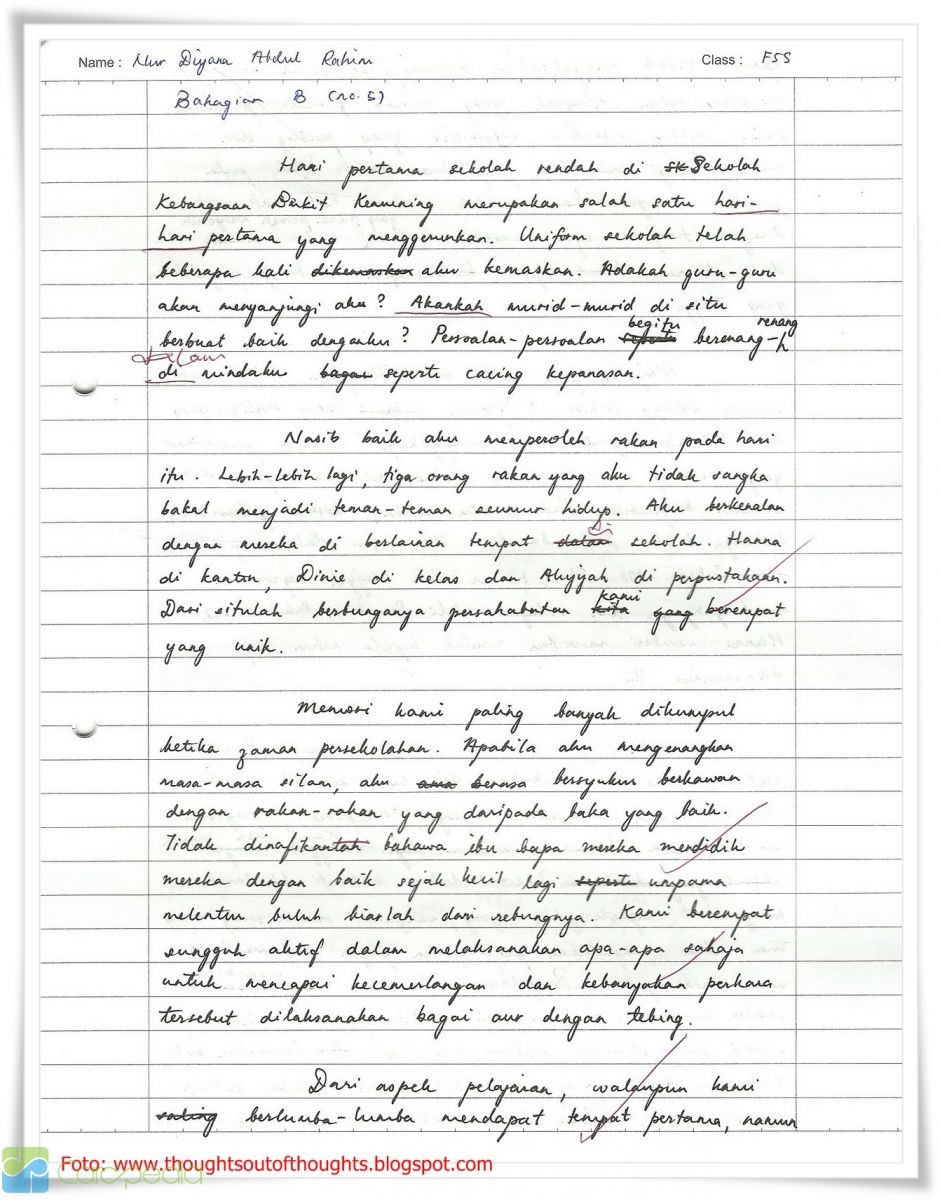 Name : Nur Diyana Abdul Rahim Class : F5S
Bahagian B (no. 5)
Hari pertama sekolah rendah di sk Sekolah
Kebangsaan Bukit Kemuning merupakan salah satu hari-
hari pertama yang menggerunkan. Uniform sekolah telah
beberapa kali dikemaskan aku kemaskan. Adakah guru-guru
akan menyanjungi aku? Akankah murid-murid di situ
begitu renang
berbuat baik denganku? Persoalan-persoalan seperti berenang-
dalam
di mindaku bagai seperti cacing kepanasan.
Nasib baik aku memperoleh rakan pada hari
itu. Lebih-lebih lagi, tiga orang rakan yang aku tidak sangka
bakal menjadi teman-teman seumur hidup. Aku berkenalan
di
dengan mereka di berlainan tempat dalam sekolah. Hanna
di kantin, Dinie di kelas dan Aliyyah di perpustakaan.
kami
Dari situlah berbunganya persahabatan kita yang berempat
yang unik.
Memori kami paling banyak dikumpul
ketika zaman persekolahan. Apabila aku mengenangkan
masa-masa silam, aku berasa bersyukur berkawan
dengan rakan-rakan yang daripada baka yang baik.
Tidak dinafikantah bahawa ibu bapa mereka mendidik
mereka dengan baik sejak kecil lagi seperti umpama
melentur buluh biarlah dari rebungnya. Kami berempat
sungguh aktif dalam melaksanakan apa-apa sahaja
untuk mencapai kecemerlangan dan kebanyakan perkara
tersebut dilaksanakan bagai aur dengan tebing.
Dari aspek pelajaran, walaupun kami
saling berlumba-lumba mendapat tempat pertama, namun
Foto: www.thoughtsoutofthoughts.blogspot.com